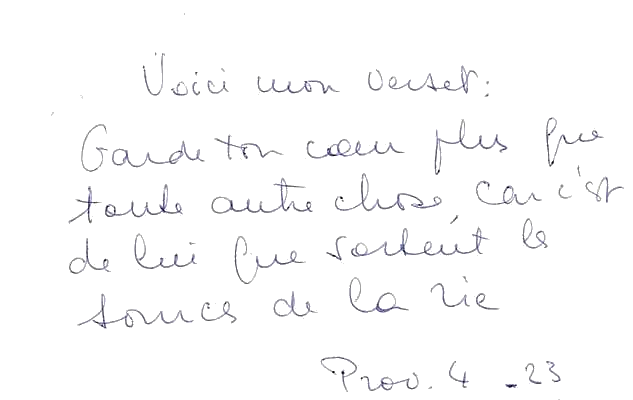 Voici mon verset:
Garde ton cœur plus que
toute autre chose, car c'est
de lui que sortent les
sources de la vie
Prov. 4 - 23